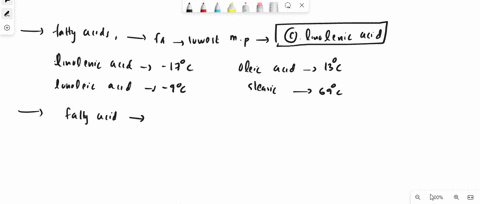 → fatty acids, → FA → lowest m.p → (C) linolenic acid
linolenic acid → -17°C oleic acid → 13°C
linoleic acid → -9°C stearic → 69°C
→ fatty acid →